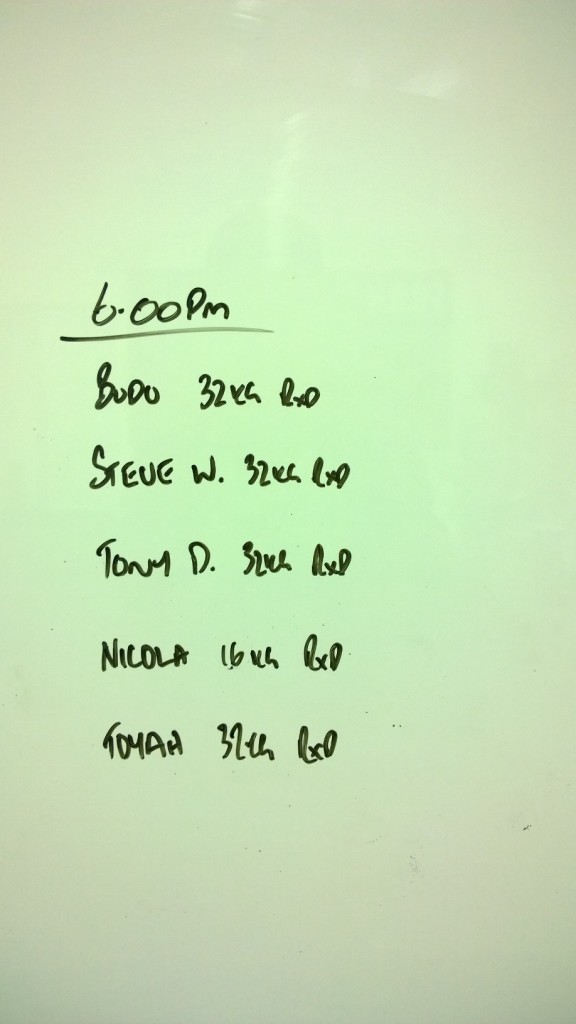 6.00Pm
BUDO 32KG RxD
STEVE W. 32KG RxD
TONY D. 32KG RxD
NICOLA 16KG RxD
TOYAH 32KG RxD